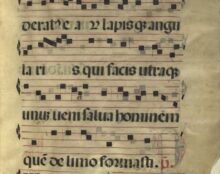 lapisq; angu
laris qui facis utraq;
unu; ueni salua hominem
qué de limo formasti.